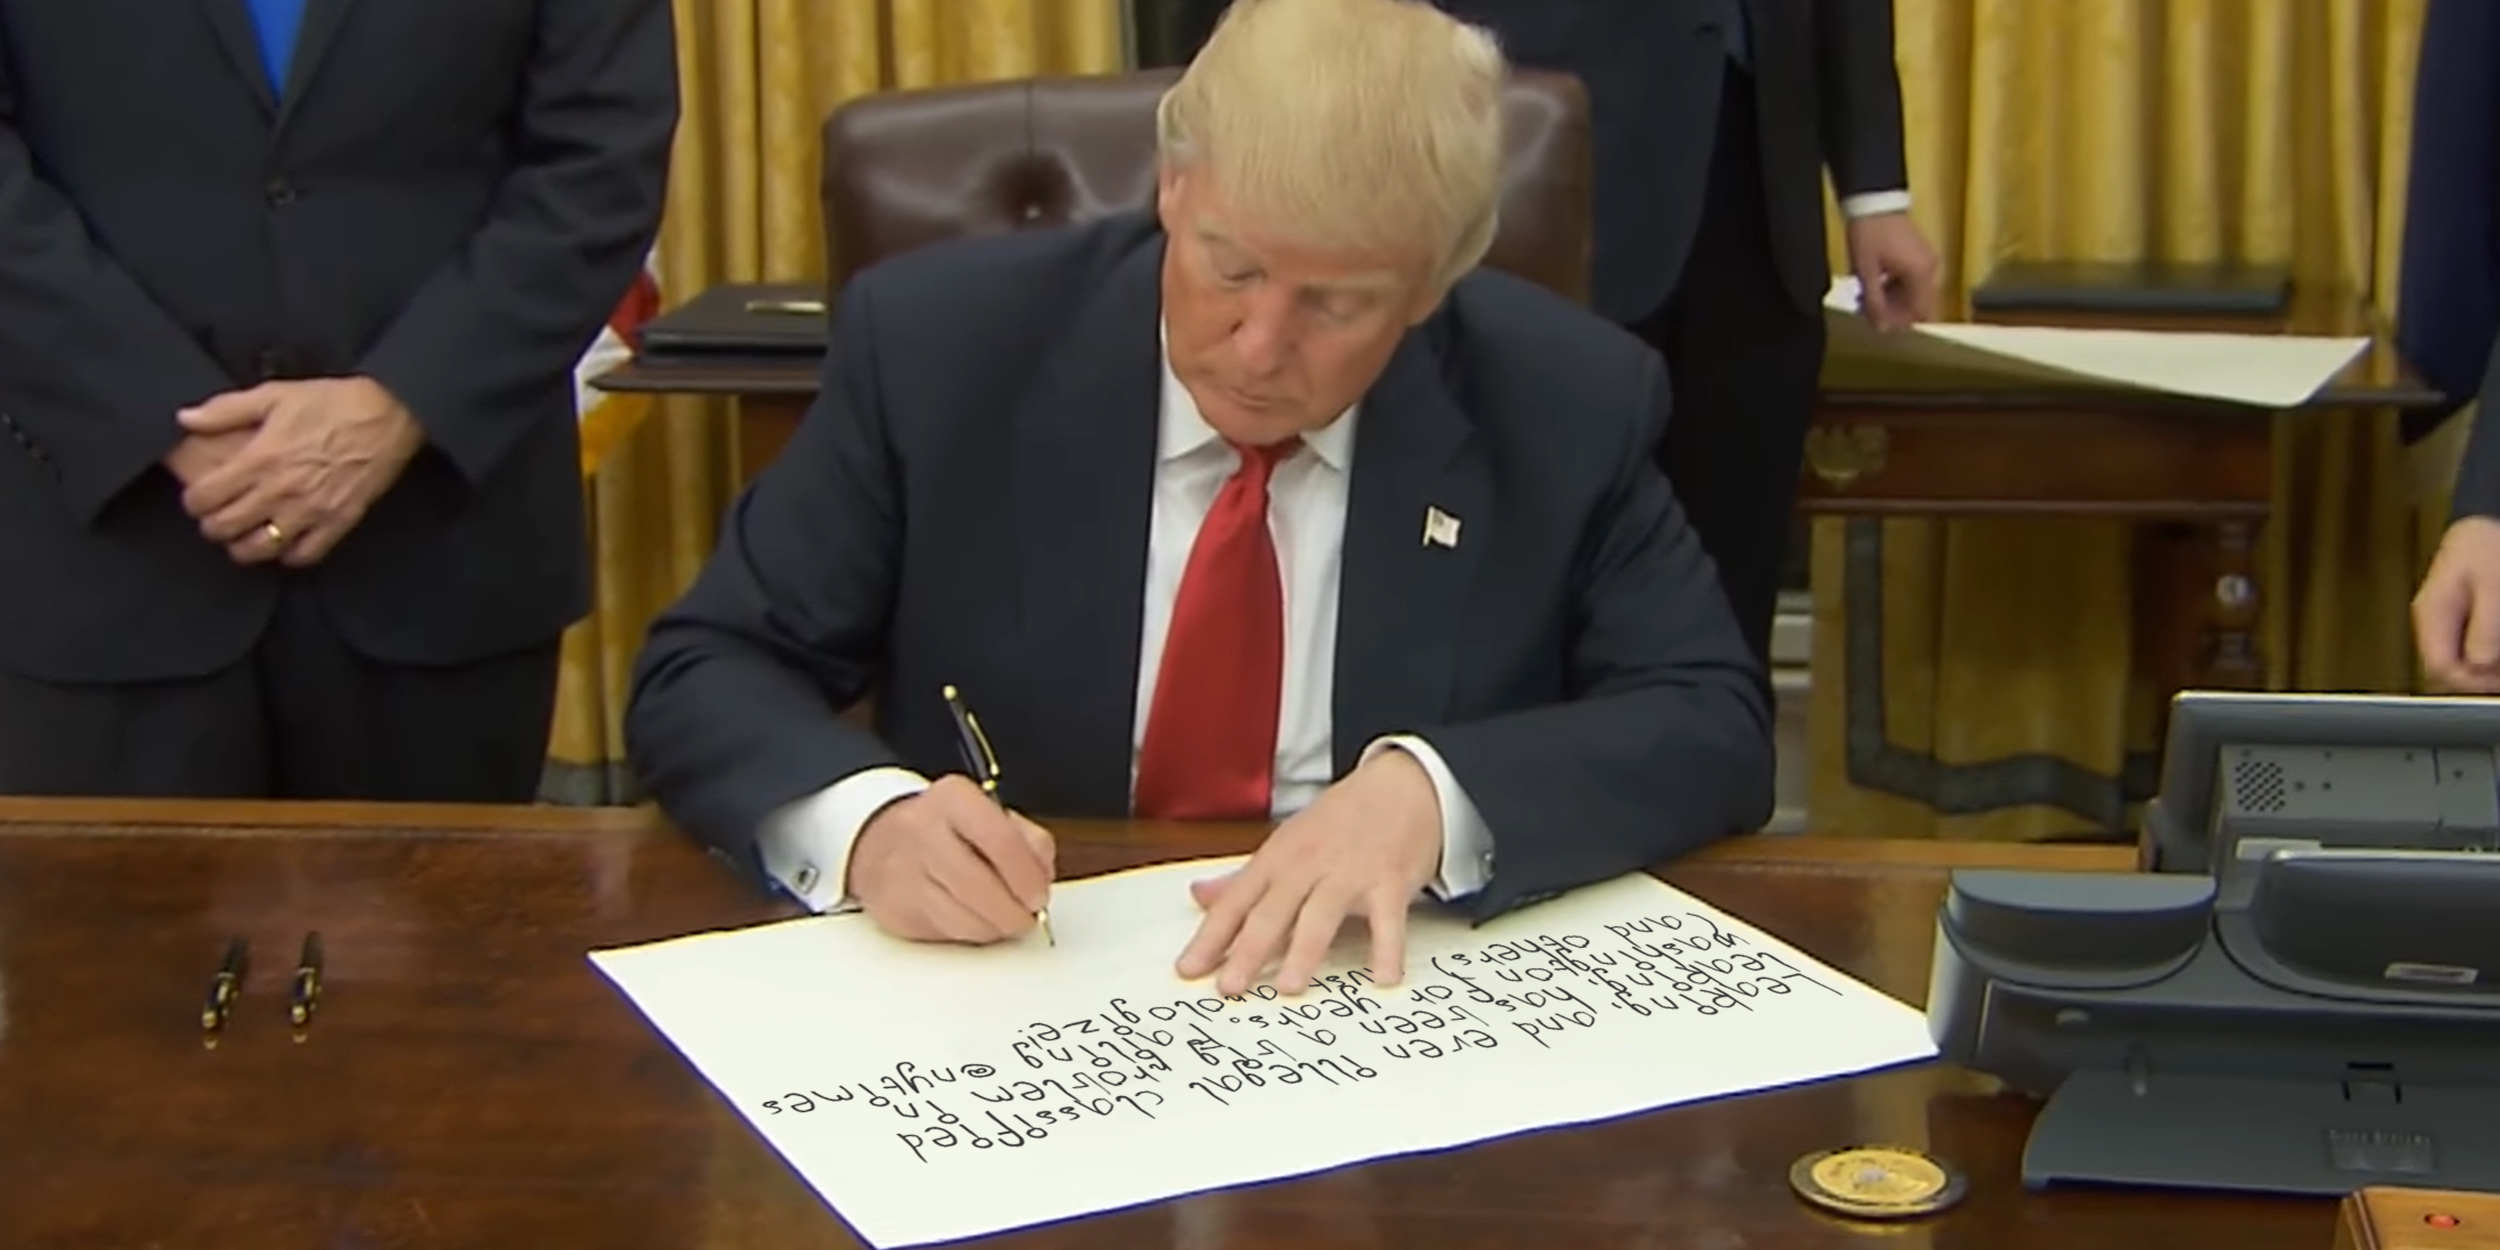 Leaking, and even illegal classified
leaking, has been a big problem in
Washington for years. Failing @nytimes
(and others) must apologize!